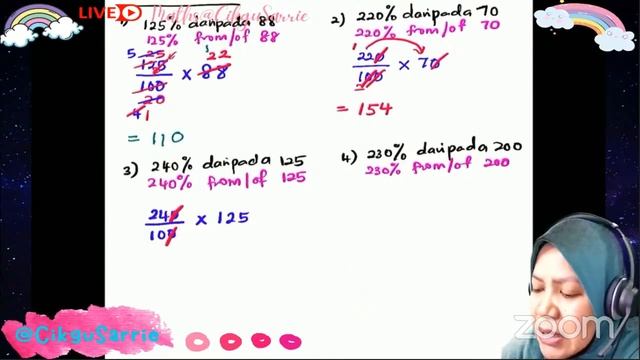 LIVE Maths@CikguSarrie
1) 125% daripada 88
125% from/of 88
5 25
125
100
20
4 1
× 88
22
= 110
2) 220% daripada 70
220% from/of 70
220
100
× 70
= 154
3) 240% daripada 125
240% from/of 125
240
100
× 125
4) 230% daripada 200
230% from/of 200
@CikguSarrie
zoom